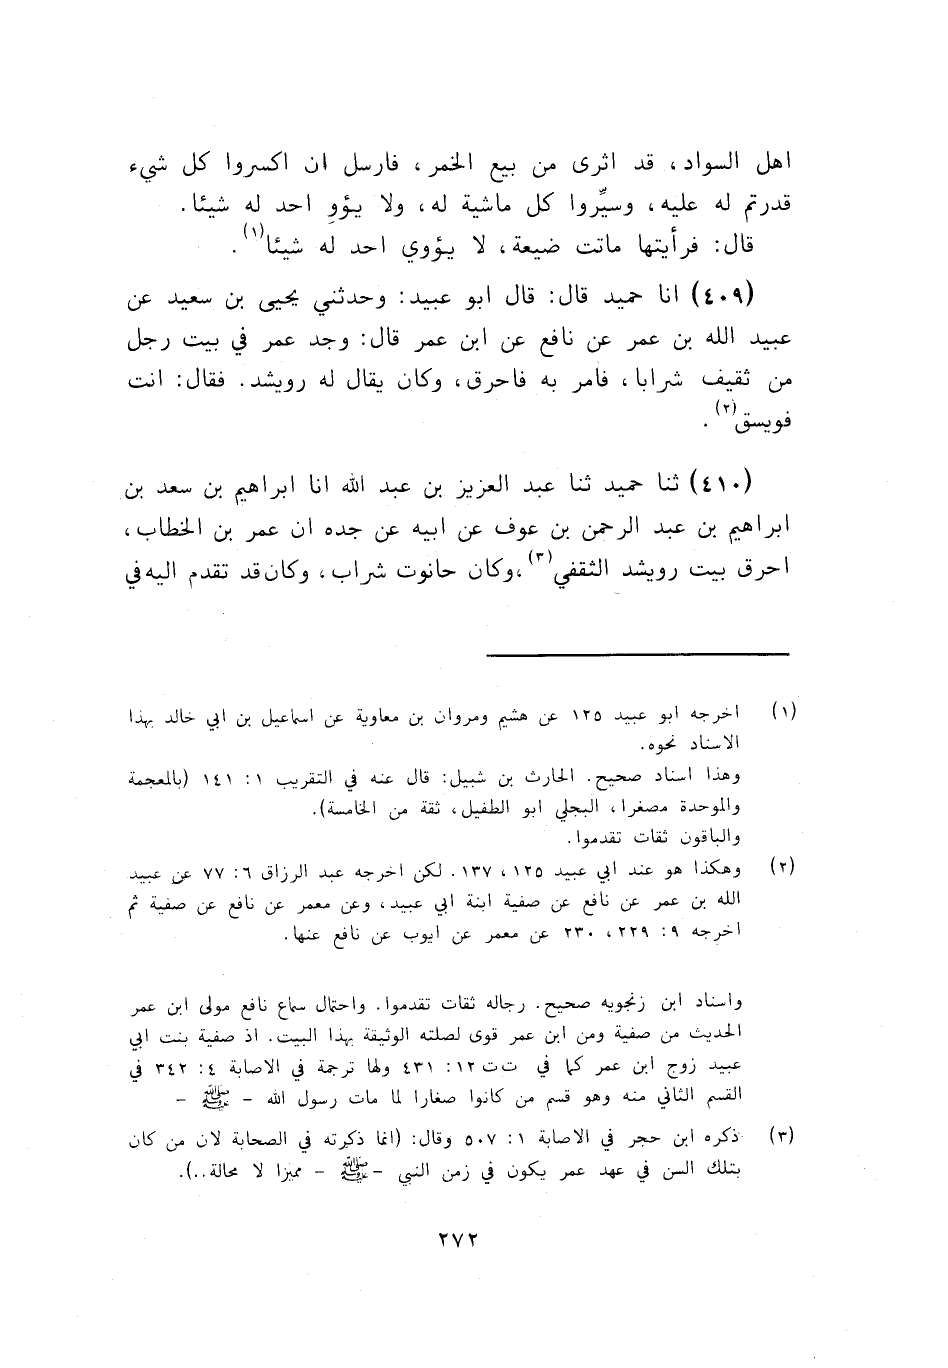 اهل السواد، قد اثرى من بيع الخمر، فارسل ان اكسروا كل شيء
قدرتم له عليه، وسيِّروا كل ماشية له، ولا يؤو احد له شيئا.
قال: فرأيتها ماتت ضيعة، لا يؤوي احد له شيئا(١).
(٤٠٩) انا حميد قال: قال ابو عبيد: وحدثني يحيى بن سعيد عن
عبيد الله بن عمر عن نافع عن ابن عمر قال: وجد عمر في بيت رجل
من ثقيف شرابا، فامر به فاحرق، وكان يقال له رويشد. فقال: انت
فويسق(٢).
(٤١٠) ثنا حميد ثنا عبد العزيز بن عبد الله انا ابراهيم بن سعد بن
ابراهيم بن عبد الرحمن بن عوف عن ابيه عن جده ان عمر بن الخطاب،
احرق بيت رويشد الثقفي(٣)، وكان حانوت شراب، وكان قد تقدم اليه في
(١) اخرجه ابو عبيد ١٢٥ عن هشيم ومروان بن معاوية عن اسماعيل بن ابي خالد بهذا
الاسناد نحوه.
وهذا اسناد صحيح. الحارث بن شبيل: قال عنه في التقريب ١: ١٤١ (بالمعجمة
والموحدة مصغرا، البجلي ابو الطفيل، ثقة من الخامسة).
والباقون ثقات تقدموا.
(٢) وهكذا هو عند ابي عبيد ١٢٥، ١٣٧. لكن اخرجه عبد الرزاق ٦: ٧٧ عن عبيد
الله بن عمر عن نافع عن صفية ابنة ابي عبيد، وعن معمر عن نافع عن صفية ثم
اخرجه ٩: ٢٢٩، ٢٣٠ عن معمر عن ايوب عن نافع عنها.
واسناد ابن زنجويه صحيح. رجاله ثقات تقدموا. واحتمال سماع نافع مولى ابن عمر
الحديث من صفية ومن ابن عمر قوى لصلته الوثيقة بهذا البيت. اذ صفية بنت ابي
عبيد زوج ابن عمر كما في ت ت ١٢: ٤٣١ ولها ترجمة في الاصابة ٤: ٣٤٢ في
القسم الثاني منه وهو قسم من كانوا صغارا لما مات رسول الله - ﷺ -
(٣) ذكره ابن حجر في الاصابة ١: ٥٠٧ وقال: (انما ذكرته في الصحابة لان من كان
بتلك السن في عهد عمر يكون في زمن النبي - ﷺ - مميزا لا محالة..).
٢٧٢